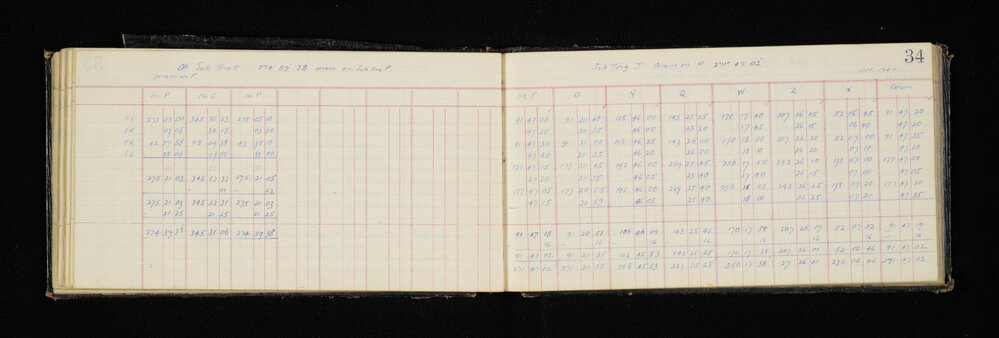 At Sub Trig K 274 59 38 origin on Sub Trig P.
Origin on P
On P On G On P
FL 275 05 00 345 36 23 275 05 10
FR 03 05 34 18 03 00
FR 42 37 58 113 09 38 42 38 10
FL
275 21 03 345 52 32 275 21 05
01 02
275 21 03 345 52 31 275 21 03
- 21 25 21 25 21 25
274 59 38 345 31 06 274 59 38
34
Sub Trig J Origin on P 271° 47' 02"
On P O Y Q W Z X Return
91 47 00 91 20 40 106 46 00 143 25 25 170 17 40 207 26 05 52 06 45 91 47 20
47 20 20 35 46 00 25 20 17 45 26 15 06 40 47 20
91 47 30 91 21 00 106 46 25 143 26 00 170 18 00 207 26 20 52 07 00 91 47 35
47 20 20 55 46 20 26 00 18 10 26 20 07 10 47 20
177 47 15 177 20 45 192 46 00 229 25 45 256 17 50 293 26 10 138 07 00 177 47 00
47 20 20 55 46 05 25 40 17 40 26 15 07 00 47 05
177 47 05 177 20 55 192 46 20 229 25 40 256 18 05 293 26 25 138 07 20 177 47 20
47 15 20 59 46 05 25 40 18 00 26 25 07 20 47 25
91 47 18 91 20 51 106 46 09 143 25 41 170 17 54 207 26 17 52 07 02 91 47 19
- 16 - 16 16 16 16 16 16 - 16
91 47 02 91 20 35 106 45 53 143 25 25 170 17 38 207 26 01 52 06 46 91 47 02
271 47 02 271 20 35 286 45 53 323 25 25 350 17 38 27 26 01 232 06 46 271 47 02